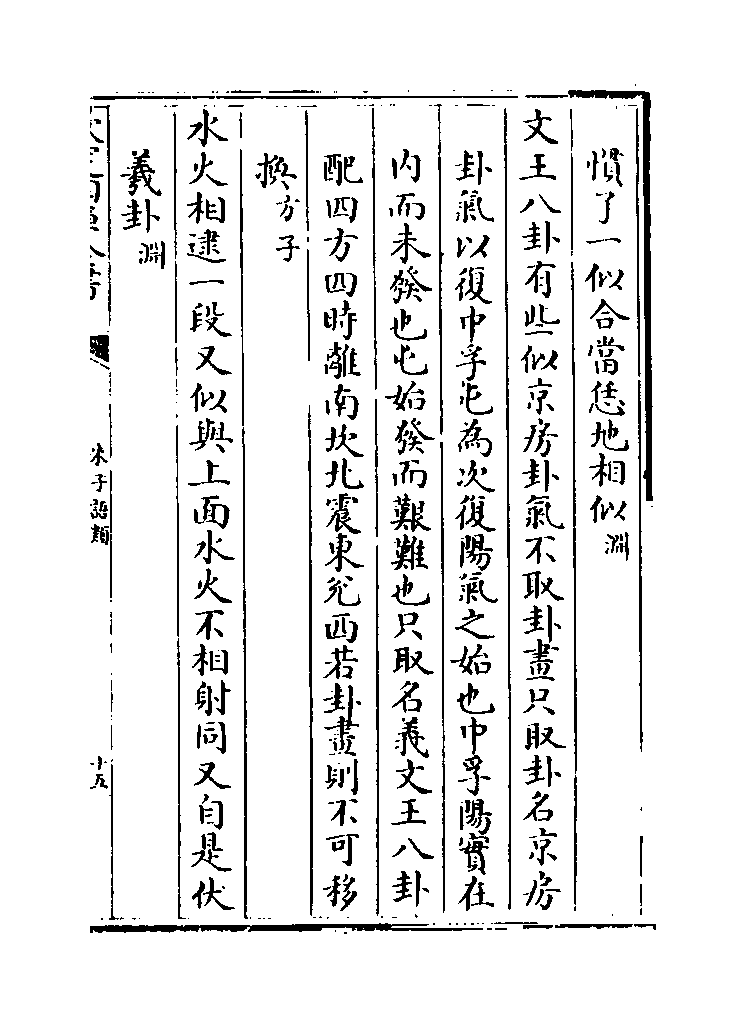 慣了一似合當恁地相似淵
文王八卦有些似京房卦氣不取卦畫只取卦名京房
卦氣以復中孚屯為次復陽氣之始也中孚陽實在
内而未發也屯始發而艱難也只取名義文王八卦
配四方四時離南坎北震東兌西若卦畫則不可移
換方子
水火相逮一段又似與上面水火不相射同又自是伏
羲卦淵
朱子語類
十五